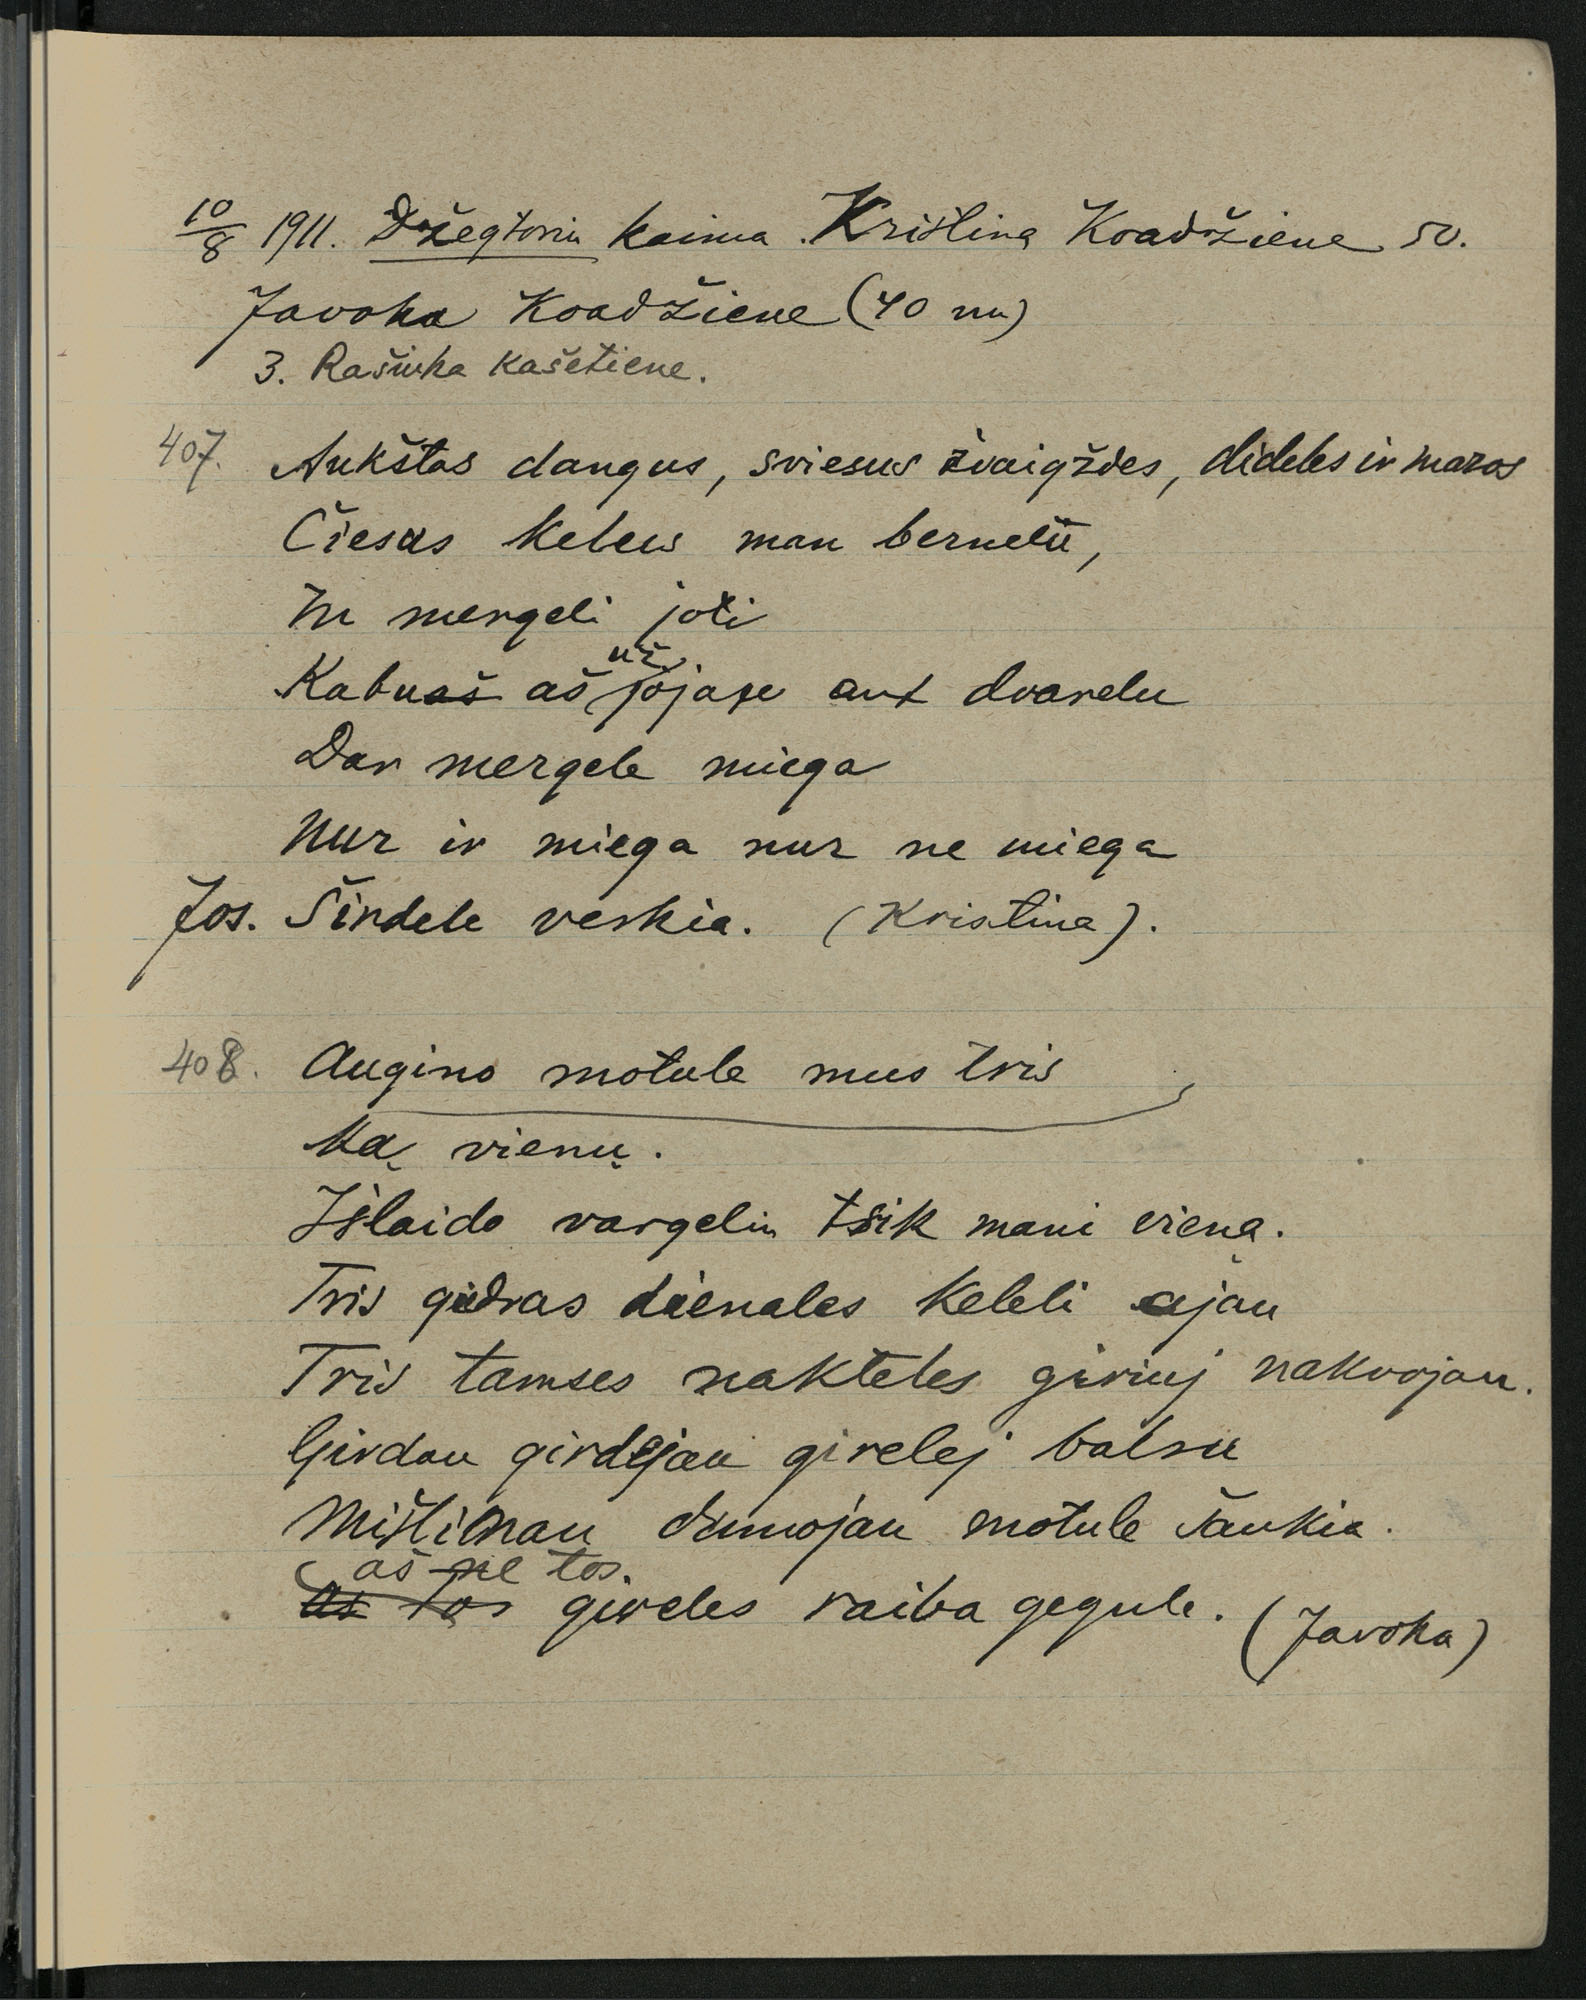 10/8 1911. Džegtoriu kaima. Kristina Koadžiene 50.
Javoha Koadžiene (40 m)
3. Rašinka Kašetiene.
407. Aukštas dangus, sviesus žvaigždes, dideles ir mazos
Čiesas keleis man bernelü,
In mergeli joti
Kabu aš už jojase ant dvarelu
Dar mergele miega
Nur ir miega nur ne miega
Jos. Širdele verkia. (Kristina).
408. Augino motule mus tris
ką vienų.
Išlaido vargelin tšik mani vieną.
Tris gidras dienales keleli ajau
Tris tamses nakteles giriuj nakvojau.
Girdau girdejau girelej balsu
Mištinau dumojau motule šaukia.
aš ne tos
gireles raiba gegule. (Javoha)